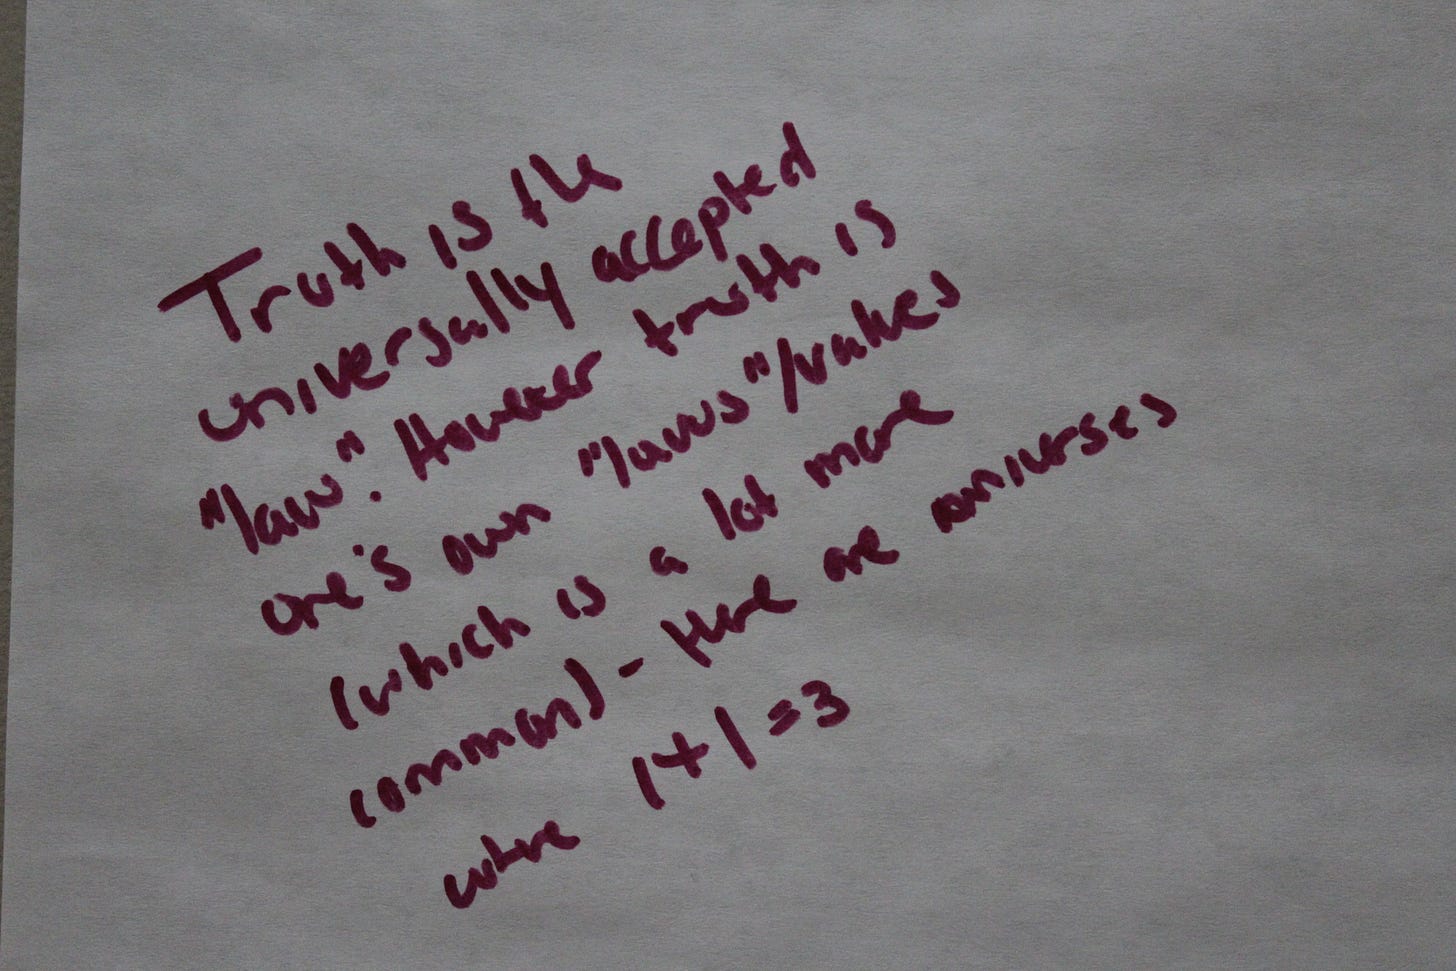 Truth is the
universally accepted
"law". However truth is
one's own "laws"/values
(which is a lot more
common) - there are universes
where 1+1=3